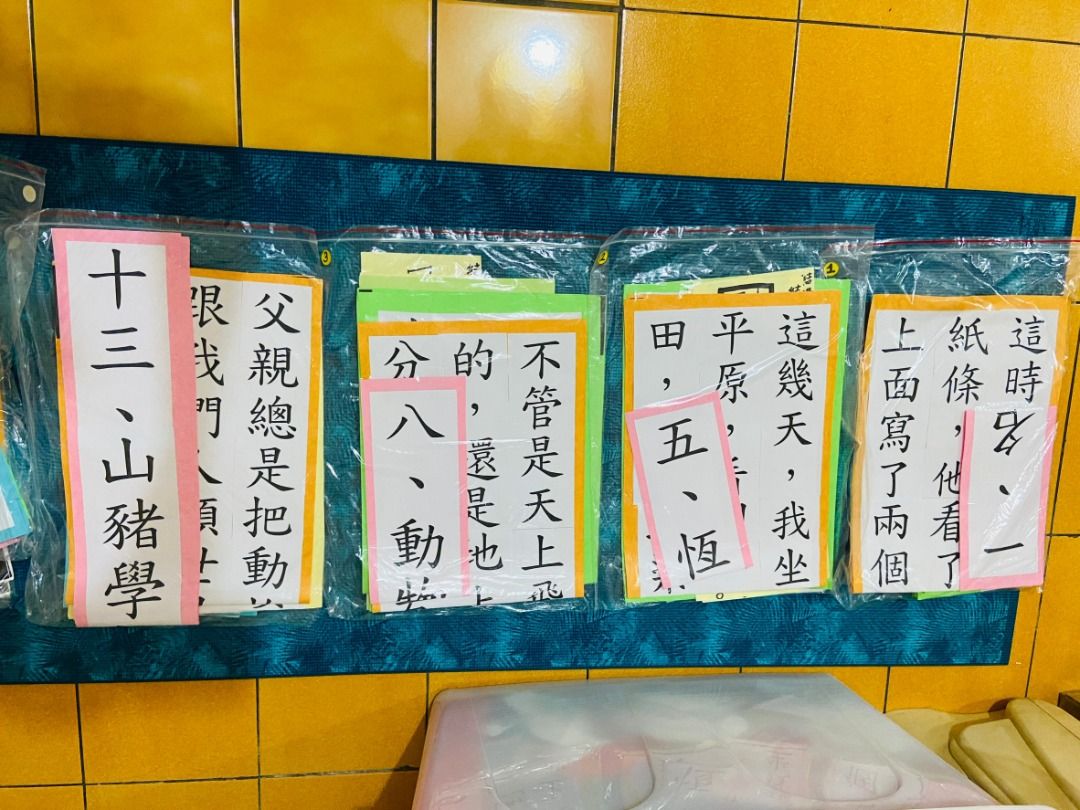 這時
紙條，他看了
上面寫了兩個
一、名
1
這幾天，我坐
平原，
田，
五、恆
2
不管是天上飛
的，還是地上
分
八、動物
3
父親總是把動
跟我們
十三、山豬學